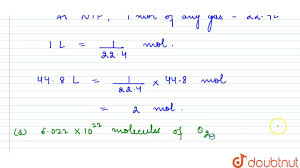 At NTP, 1 mol of any gas = 22.4L
1 L = 1/22.4 mol.
44.8 L = 1/22.4 × 44.8 mol
= 2 mol.
(d) 6.022 × 10²² molecules of O₂
doubtnut